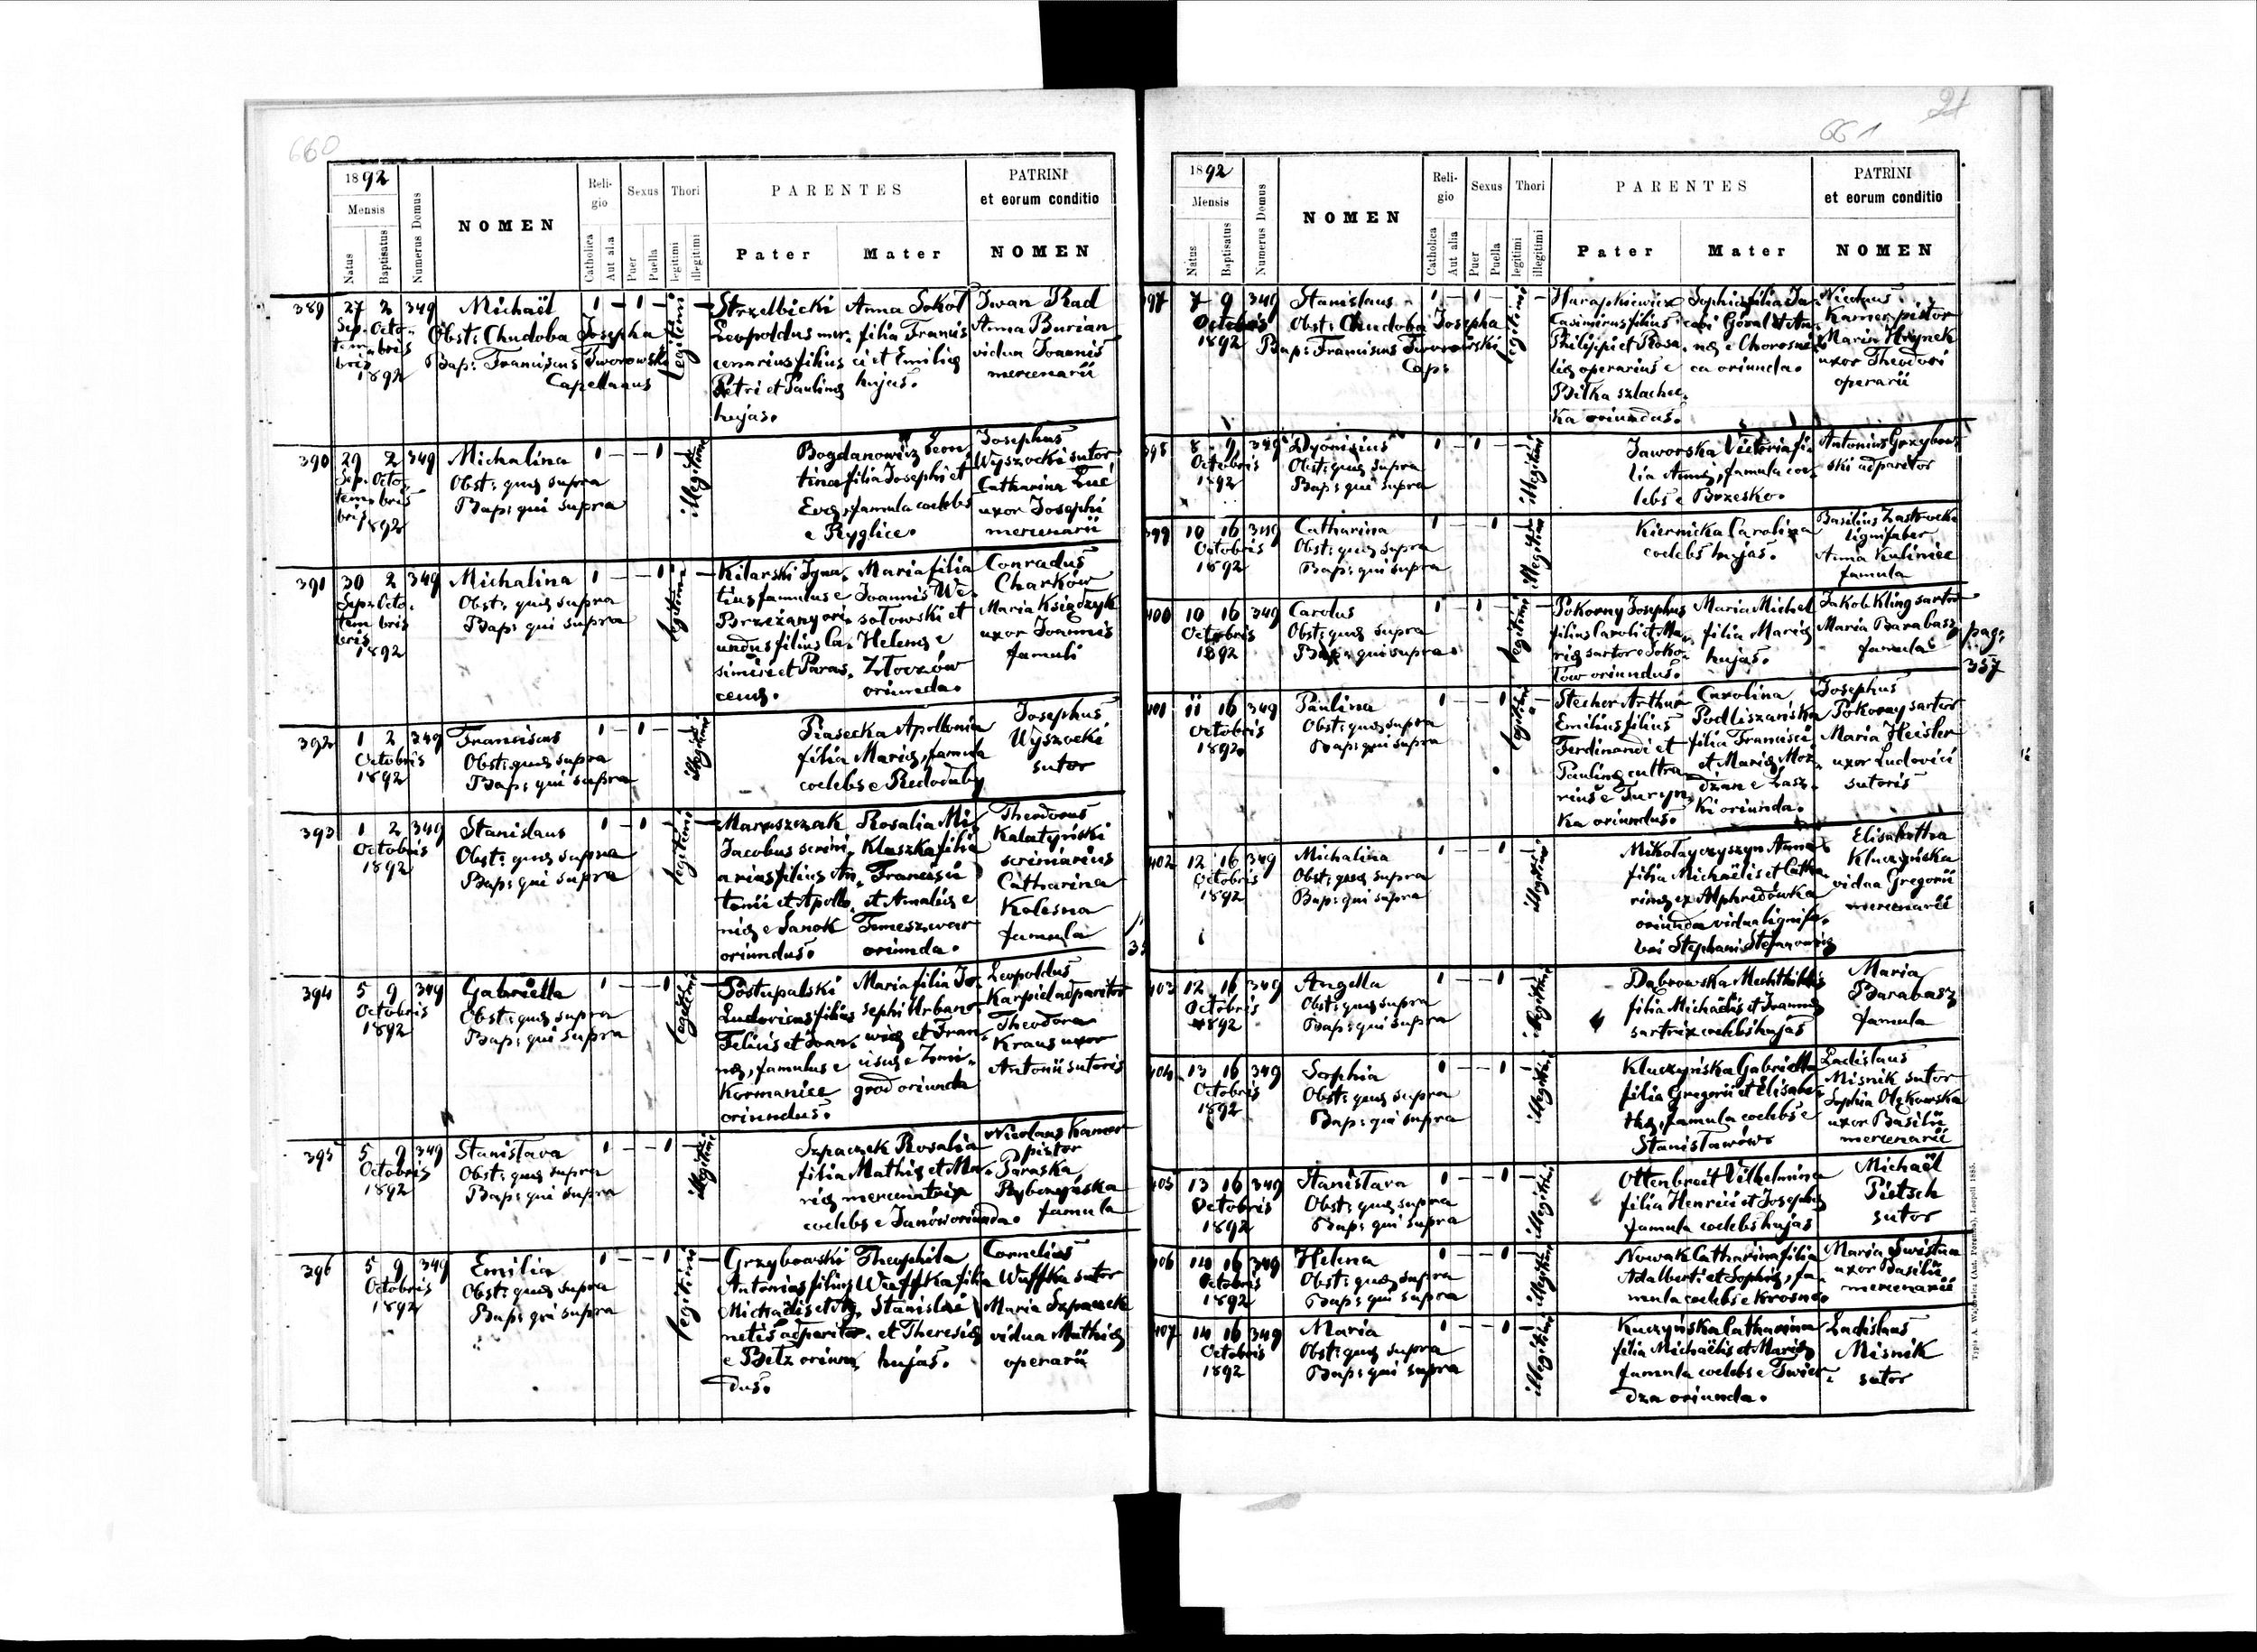 660
1892
Mensis
Natus
Baptisatus
Numerus Domus
NOMEN
Religio
Catholica
Aut alia
Sexus
Puer
Puella
Thori
legitimi
illegitimi
PARENTES
Pater
Mater
PATRINI
et eorum conditio
NOMEN
389
27 2 349
Sep. Octo
tem bris
bris
1892
Michaël
Obst: Chudoba Josepha
Bap: Franciscus Tworowski
Capellanus
1 – 1 –
legitimi
Strzelbicki
Leopoldus mer.
cenarius filius
Petri et Paulinę
hujas.
Anna Sokół
filia Francis
ci et Emilię
hujas.
Iwan Rad
Anna Burian
vidua Joannis
mercenarii
390
29 2 349
Sep. Octo
tem bris
bris
1892
Michalina
Obst: quę supra
Bap: qui supra
1 – – 1
illegitimi
Bogdanowicz Leon
tina filia Josephi et
Evę, famula coelebs
e Ryglice.
Josephus
Wyszocki sutor
Catharina Łuć
uxor Josephi
mercenarii
391
30 2 349
Sep. Octo.
tem bris
bris
1892
Michalina
Obst: quę supra
Bap: qui supra
1 – – 1
legitimi
Kilarski Igna.
tius famulus e
Brzeżany ori.
undus filius Ca.
simiri et Paras.
cevę.
Maria filia
Joannis We
sołowski et
Helenę e
Złoczów
oriunda.
Conradus
Charków
Maria Książzyk
uxor Joannis
famuli
392
1 2 349
Octobris
1892
Franciscus
Obst: quę supra
Bap: qui supra
1 – 1 –
illegitimi
Piasecka Apollonia
filia Marię, famula
coelebs e Redoduby
Josephus
Wyszocki
sutor
393
1 2 349
Octobris
1892
Stanislaus
Obst: quę supra
Bap: qui supra
1 – 1 –
legitimi
Maruszczak
Jacobus scrini.
arius filius An.
tonii et Apollo.
nię e Sanok
oriundus.
Rosalia Mi
Kluszka filia
Francisci
et Amalię e
Temeszwar
oriunda.
Theodorus
Kalatyński
scrinarius
Catharina
Kolesna
famula
394
5 9 349
Octobris
1892
Gabriella
Obst: quę supra
Bap: qui supra
1 – – 1
legitimi
Postupalski
Ludovicus filius
Felicis et Joan.
nę, famulus e
Kormanice
oriundus.
Maria filia Jo.
sephi Urbano
wicz et Fran.
ciscę e Żmi.
gród oriunda
Leopoldus
Karpiel adparitor
Theodora
Kraus uxor
Antonii sutoris
395
5 9 349
Octobris
1892
Stanisława
Obst: quę supra
Bap: qui supra
1 – – 1
illegitimi
Szpaczek Rosalia
filia Mathię et Ma.
rię mercenatrix
coelebs e Janów oriunda.
Nicolaus Kamer
pistor
Paraska
famula
396
5 9 349
Octobris
1892
Emilia
Obst: quę supra
Bap: qui supra
1 – – 1
legitimi
Grzybowski
Antonius filius
Michaëlis et Ag.
netis adparitor.
e Bełz oriun,
dus.
Theophila
Wuffka filia
Stanislai
et Theresię
hujas.
Cornelius
Wuffka sutor
Maria Szpaczek
vidua Mathię
operarii
21
661
1892
Mensis
Natus
Baptisatus
Numerus Domus
NOMEN
Religio
Catholica
Aut alia
Sexus
Puer
Puella
Thori
legitimi
illegitimi
PARENTES
Pater
Mater
PATRINI
et eorum conditio
NOMEN
397
7 9 349
Octobris
1892
Stanislaus
Obst: Chudoba Josepha
Bap: Franciscus Tworowski
Cap:
1 – 1 –
legitimi
Harapkiewicz
Casimirus filius
Philippi et Rosa.
lię operarius e
Biłka szlachec.
ka oriundus.
Sophia filia Ja.
cobi Góral et An.
nę e Chorosne
ca oriunda.
Nicolaus
Kamer pistor
Maria Hrynek
uxor Theodori
operarii
398
8 9 349
Octobris
1892
Dyonisius
Obst: quę supra
Bap: qui supra
1 – 1 –
illegitimi
Jaworska Victoria fi.
lia Annę, famula coe.
lebs e Brzesko.
Antonius Grzybow
ski adparitor
399
10 16 349
Octobris
1892
Catharina
Obst: quę supra
Bap: qui supra
1 – – 1
illegitimi
Kiernicka Carolina
coelebs hujas.
Basilius Zastrocki
lignifaber
Anna Kuliniec
famula
400
10 16 349
Octobris
1892
Carolus
Obst: quę supra
Bap: qui supra
1 – 1 –
legitimi
Pokorny Josephus
filius Caroli et Ma.
rię sartor e Soko
łów oriundus.
Maria Michel
filia Marię
hujas.
Jakob Kling sartor
Maria Barabasz
famula
pag:
357
401
11 16 349
Octobris
1892
Paulina
Obst: quę supra
Bap: qui supra
1 – – 1
legitimi
Stecher Arthur
Emilius filius
Ferdinandi et
Paulinę cultra
rius e Turyn.
ka oriundus.
Carolina
Podliszańska
filia Francisci
et Marię Moz
dzan e Łasz.
ki oriunda.
Josephus
Pokorny sartor
Maria Heisler
uxor Ludovici
sutoris
402
12 16 349
Octobris
1892
Michalina
Obst: quę supra
Bap: qui supra
1 – – 1
illegitimi
Mikołayczyszyn Anna
filia Michaëlis et Catha
rinę ex Alphredówka
oriunda vidua lignifa.
bri Stephani Stefanowicz
Elisabetha
Kluczyńska
vidua Gregorii
mercenarii
403
12 16 349
Octobris
1892
Angella
Obst: quę supra
Bap: qui supra
1 – – 1
illegitimi
Dąbrowska Mechthildis
filia Michaëlis et Joannę
sartrix coelebs hujas
Maria
Barabasz
famula
404
13 16 349
Octobris
1892
Sophia
Obst: quę supra
Bap: qui supra
1 – – 1
illegitimi
Kluczyńska Gabriella
filia Gregorii et Elisabe
thę, famula coelebs e
Stanisławów
Ladislaus
Misnik sutor
Sophia Olękowska
uxor Basilii
mercenarii
405
13 16 349
Octobris
1892
Stanisłava
Obst: quę supra
Bap: qui supra
1 – – 1
illegitimi
Ottenbreit Vilhelmina
filia Henrici et Josephę
famula coelebs hujas
Michaël
Pietsch
sutor
406
14 16 349
Octobris
1892
Helena
Obst: quę supra
Bap: qui supra
1 – – 1
illegitimi
Nowak Catharina filia
Adalberti et Sophię, fa.
mula coelebs e Krosno.
Maria Swistun
uxor Basilii
mercenarii
407
14 16 349
Octobris
1892
Maria
Obst: quę supra
Bap: qui supra
1 – – 1
illegitimi
Kuczyńska Catharina
filia Michaëlis et Marię
famula coelebs e Twier
dza oriunda.
Ladislaus
Misnik
sutor
Leopoli 1885.